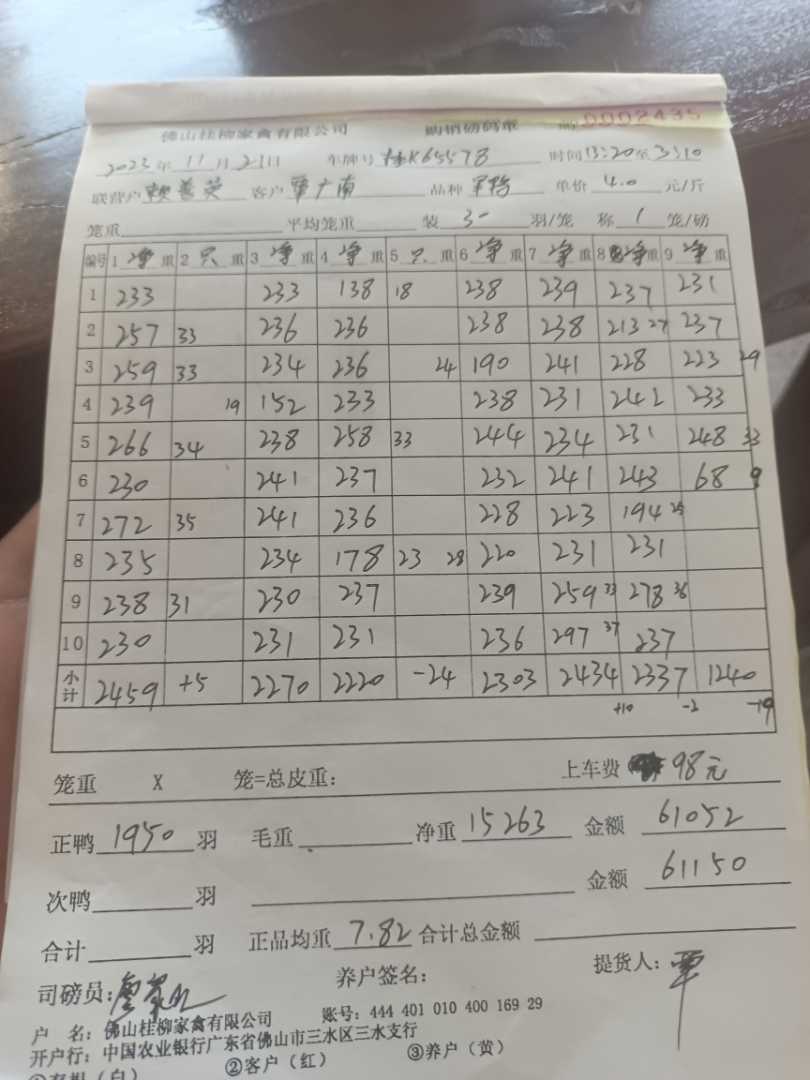 佛山桂柳家禽有限公司 购销磅码单 0002435
2023年11月21日 车牌号 桂K65578 时间13:20至3:10
联营户 赖善英 客户 覃广南 品种 单价 4.0 元/斤
笼重 平均笼重 装 30 羽/笼 称 1 笼/磅
编号 1 净 重 2 只 重 3 净 重 4 净 重 5 只 重 6 净 重 7 净 重 8 净 重 9 净 重
1 233 233 138 18 238 239 237 231
2 257 33 236 236 238 238 213 27 237
3 259 33 234 236 24 190 241 228 223 29
4 239 19 152 233 238 231 242 233
5 266 34 238 258 33 244 234 231 248 33
6 230 241 237 232 241 243 68 9
7 272 35 241 236 228 223 194 25
8 235 234 178 23 28 220 231 231
9 238 31 230 237 239 259 33 278 36
10 230 231 231 236 297 37 237
小计 2459 +5 2270 2220 -24 2303 2434 2337 1240
+10 -2 -19
笼重 X 笼=总皮重: 上车费 98元
正鸭 1950 羽 毛重 净重 15263 金额 61052
次鸭 羽 金额 61150
合计 羽 正品均重 7.82 合计总金额
司磅员: 养户签名: 提货人: 覃
户 名: 佛山桂柳家禽有限公司 账号: 444 401 010 400 169 29
开户行: 中国农业银行广东省佛山市三水区三水支行
①存根（白） ②客户（红） ③养户（黄）